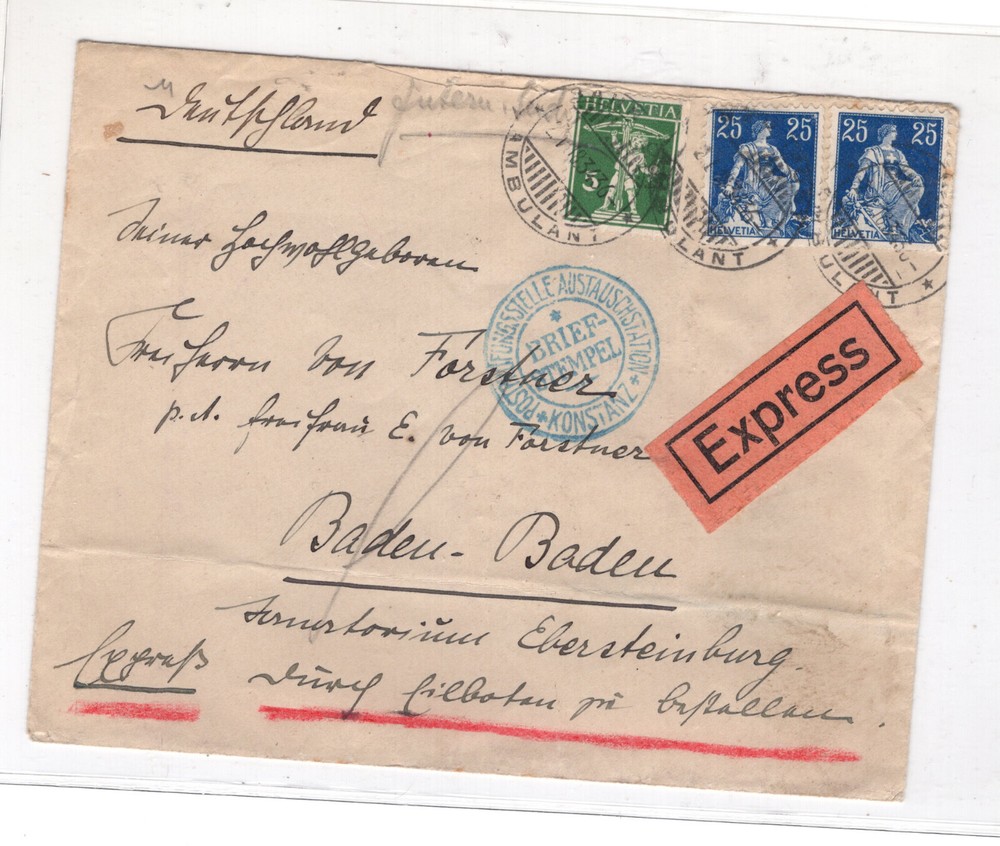 Deutschland
HELVETIA
5
25 25
HELVETIA
25 25
HELVETIA
AMBULANT
AMBULANT
AMBULANT
Seiner Hochwohlgeboren
Freiherrn von Forstner
p. A. Freifrau E. von Forstner
POSTPRÜFUNGSSTELLE AUSTAUSCHSTATION
BRIEF-
STEMPEL
* KONSTANZ *
Express
Baden-Baden
Sanatorium Ebersteinburg.
Expreß durch Eilboten zu bestellen.